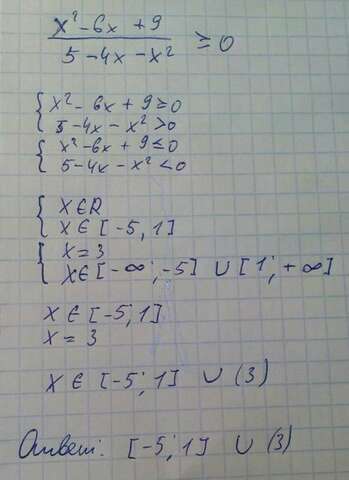 x² - 6x + 9
5 - 4x - x² ≥ 0
{ x² - 6x + 9 ≥ 0
5 - 4x - x² > 0
{ x² - 6x + 9 ≤ 0
5 - 4x - x² < 0
{ x ∈ R
x ∈ [-5; 1]
{ x = 3
x ∈ [-∞; -5] ∪ [1; +∞]
x ∈ [-5; 1]
x = 3
x ∈ [-5; 1] ∪ (3)
Ответ: [-5; 1] ∪ (3)